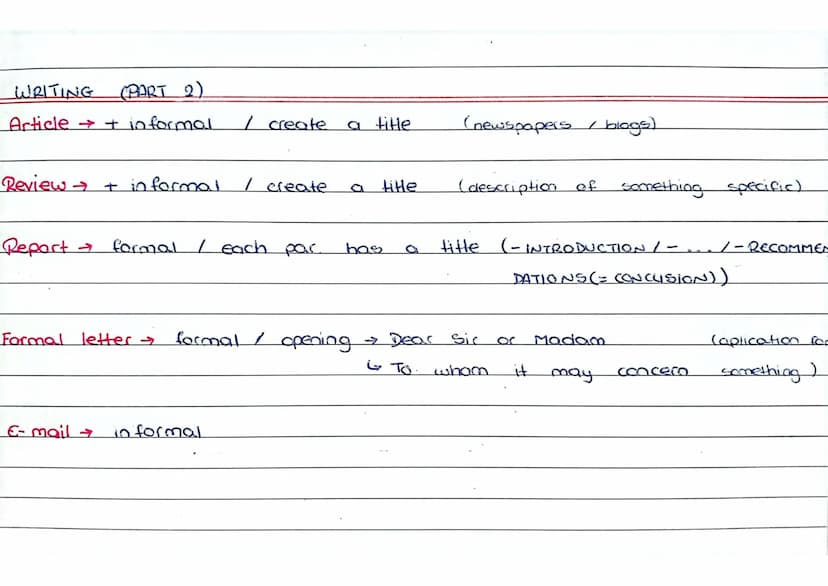 WRITING (PART 2)
Article → + informal / create a title (newspapers / blogs)
Review → + informal / create a title (description of something specific)
Report → formal / each par. has a title (- INTRODUCTION / - ... / - RECOMMEN
DATIONS (= CONCLUSION))
Formal letter → formal / opening → Dear Sir or Madam (aplication for
↳ To whom it may concern something)
E-mail → informal